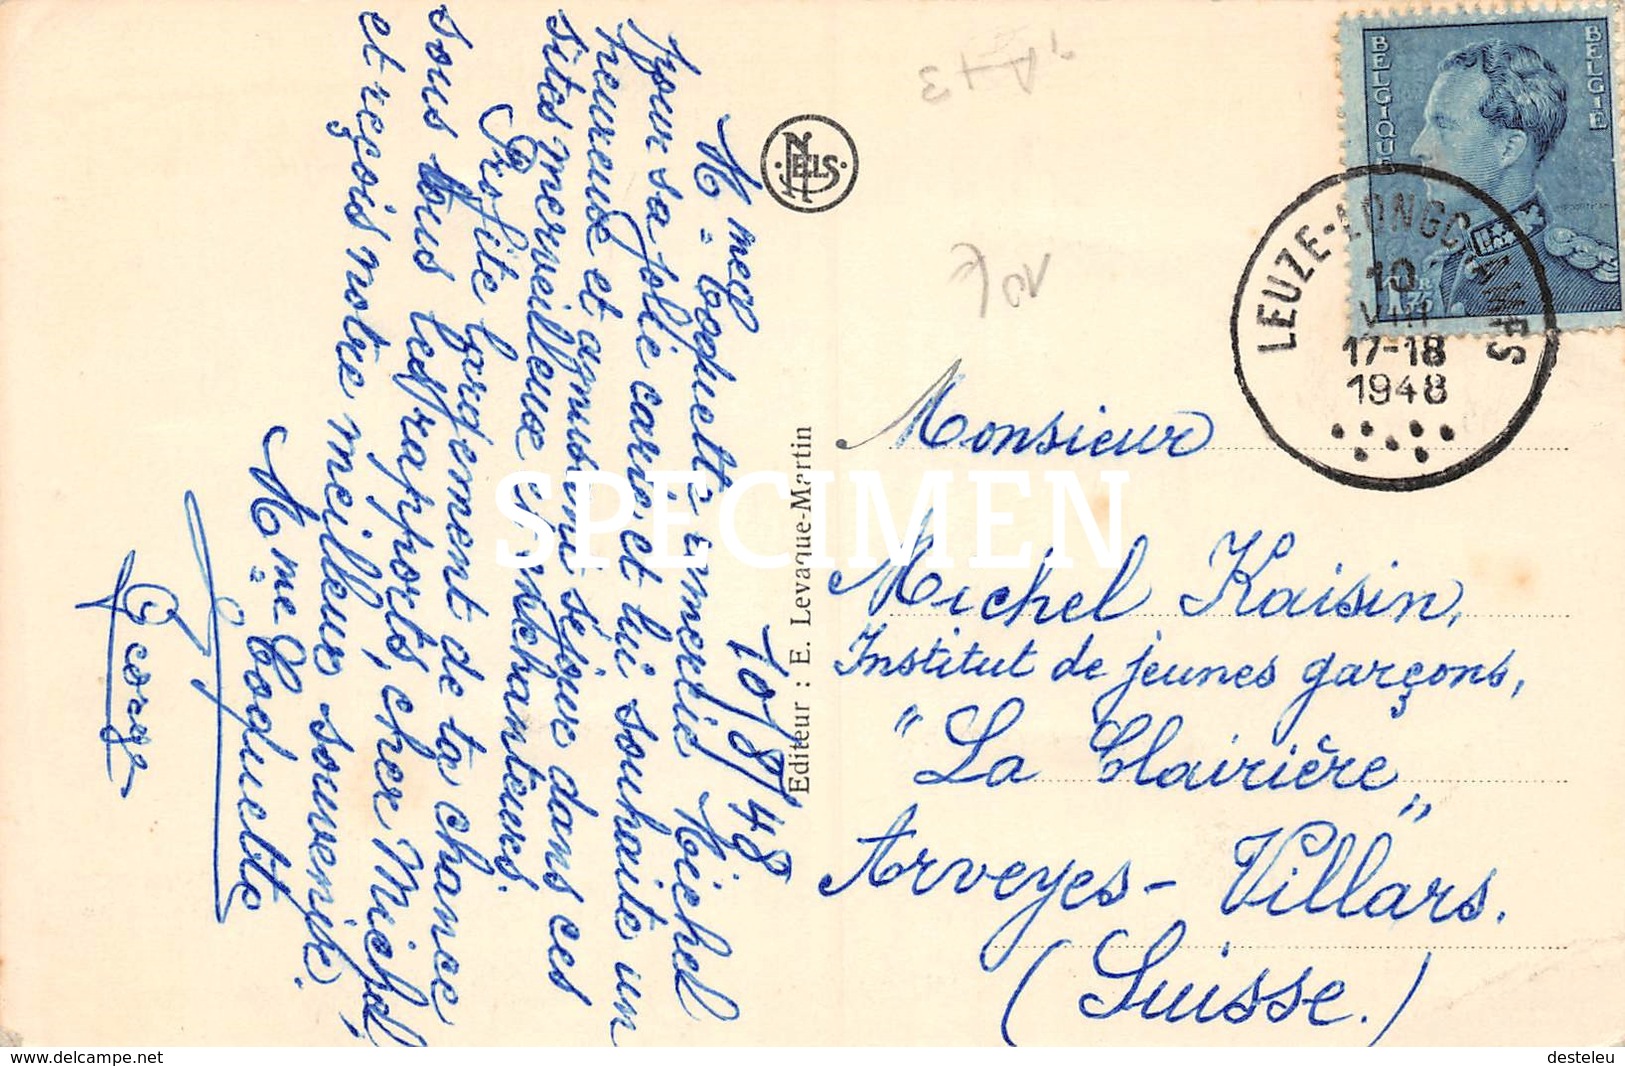 10/8/48
Mme Coquette remercie Michel
pour sa jolie carte et lui souhaite un
heureux et agnusime séjour dans ces
sites merveilleux et enchanteurs.
Profite largement de ta chance
sous tous les rapports, cher Michel,
et reçois notre meilleur souvenir.
Mme Coquette
George
NELS
Editeur : E. Levaque-Martin
BELGIQUE
BELGIE
LEUZE-LONGCHAMPS
10
VIII
17-18
1948
Monsieur
Michel Kaisin,
Institut de jeunes garçons,
"La Clairière"
Arveyes-Villars.
(Suisse.)
SPECIMEN
www.delcampe.net
desteleu